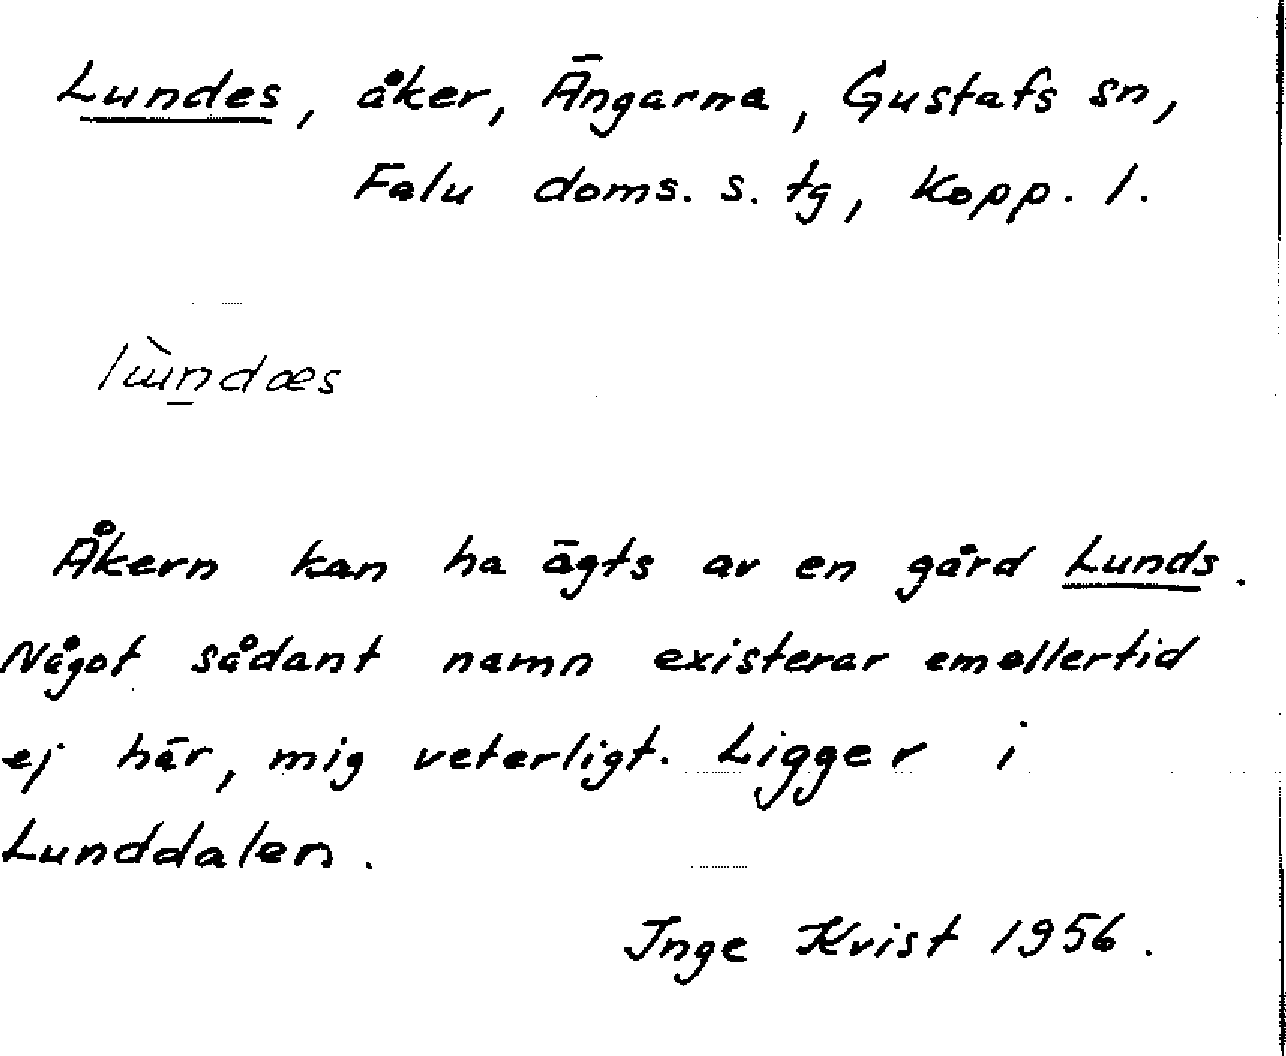 Lundes, åker, Ängarna, Gustafs sn,
Falu doms. s. tg, Kopp. l.
lɯ̀n̲dæs
Åkern kan ha ägts av en gård Lunds.
Något sådant namn existerar emellertid
ej här, mig veterligt. Ligger i
Lunddalen.
Inge Kvist 1956.